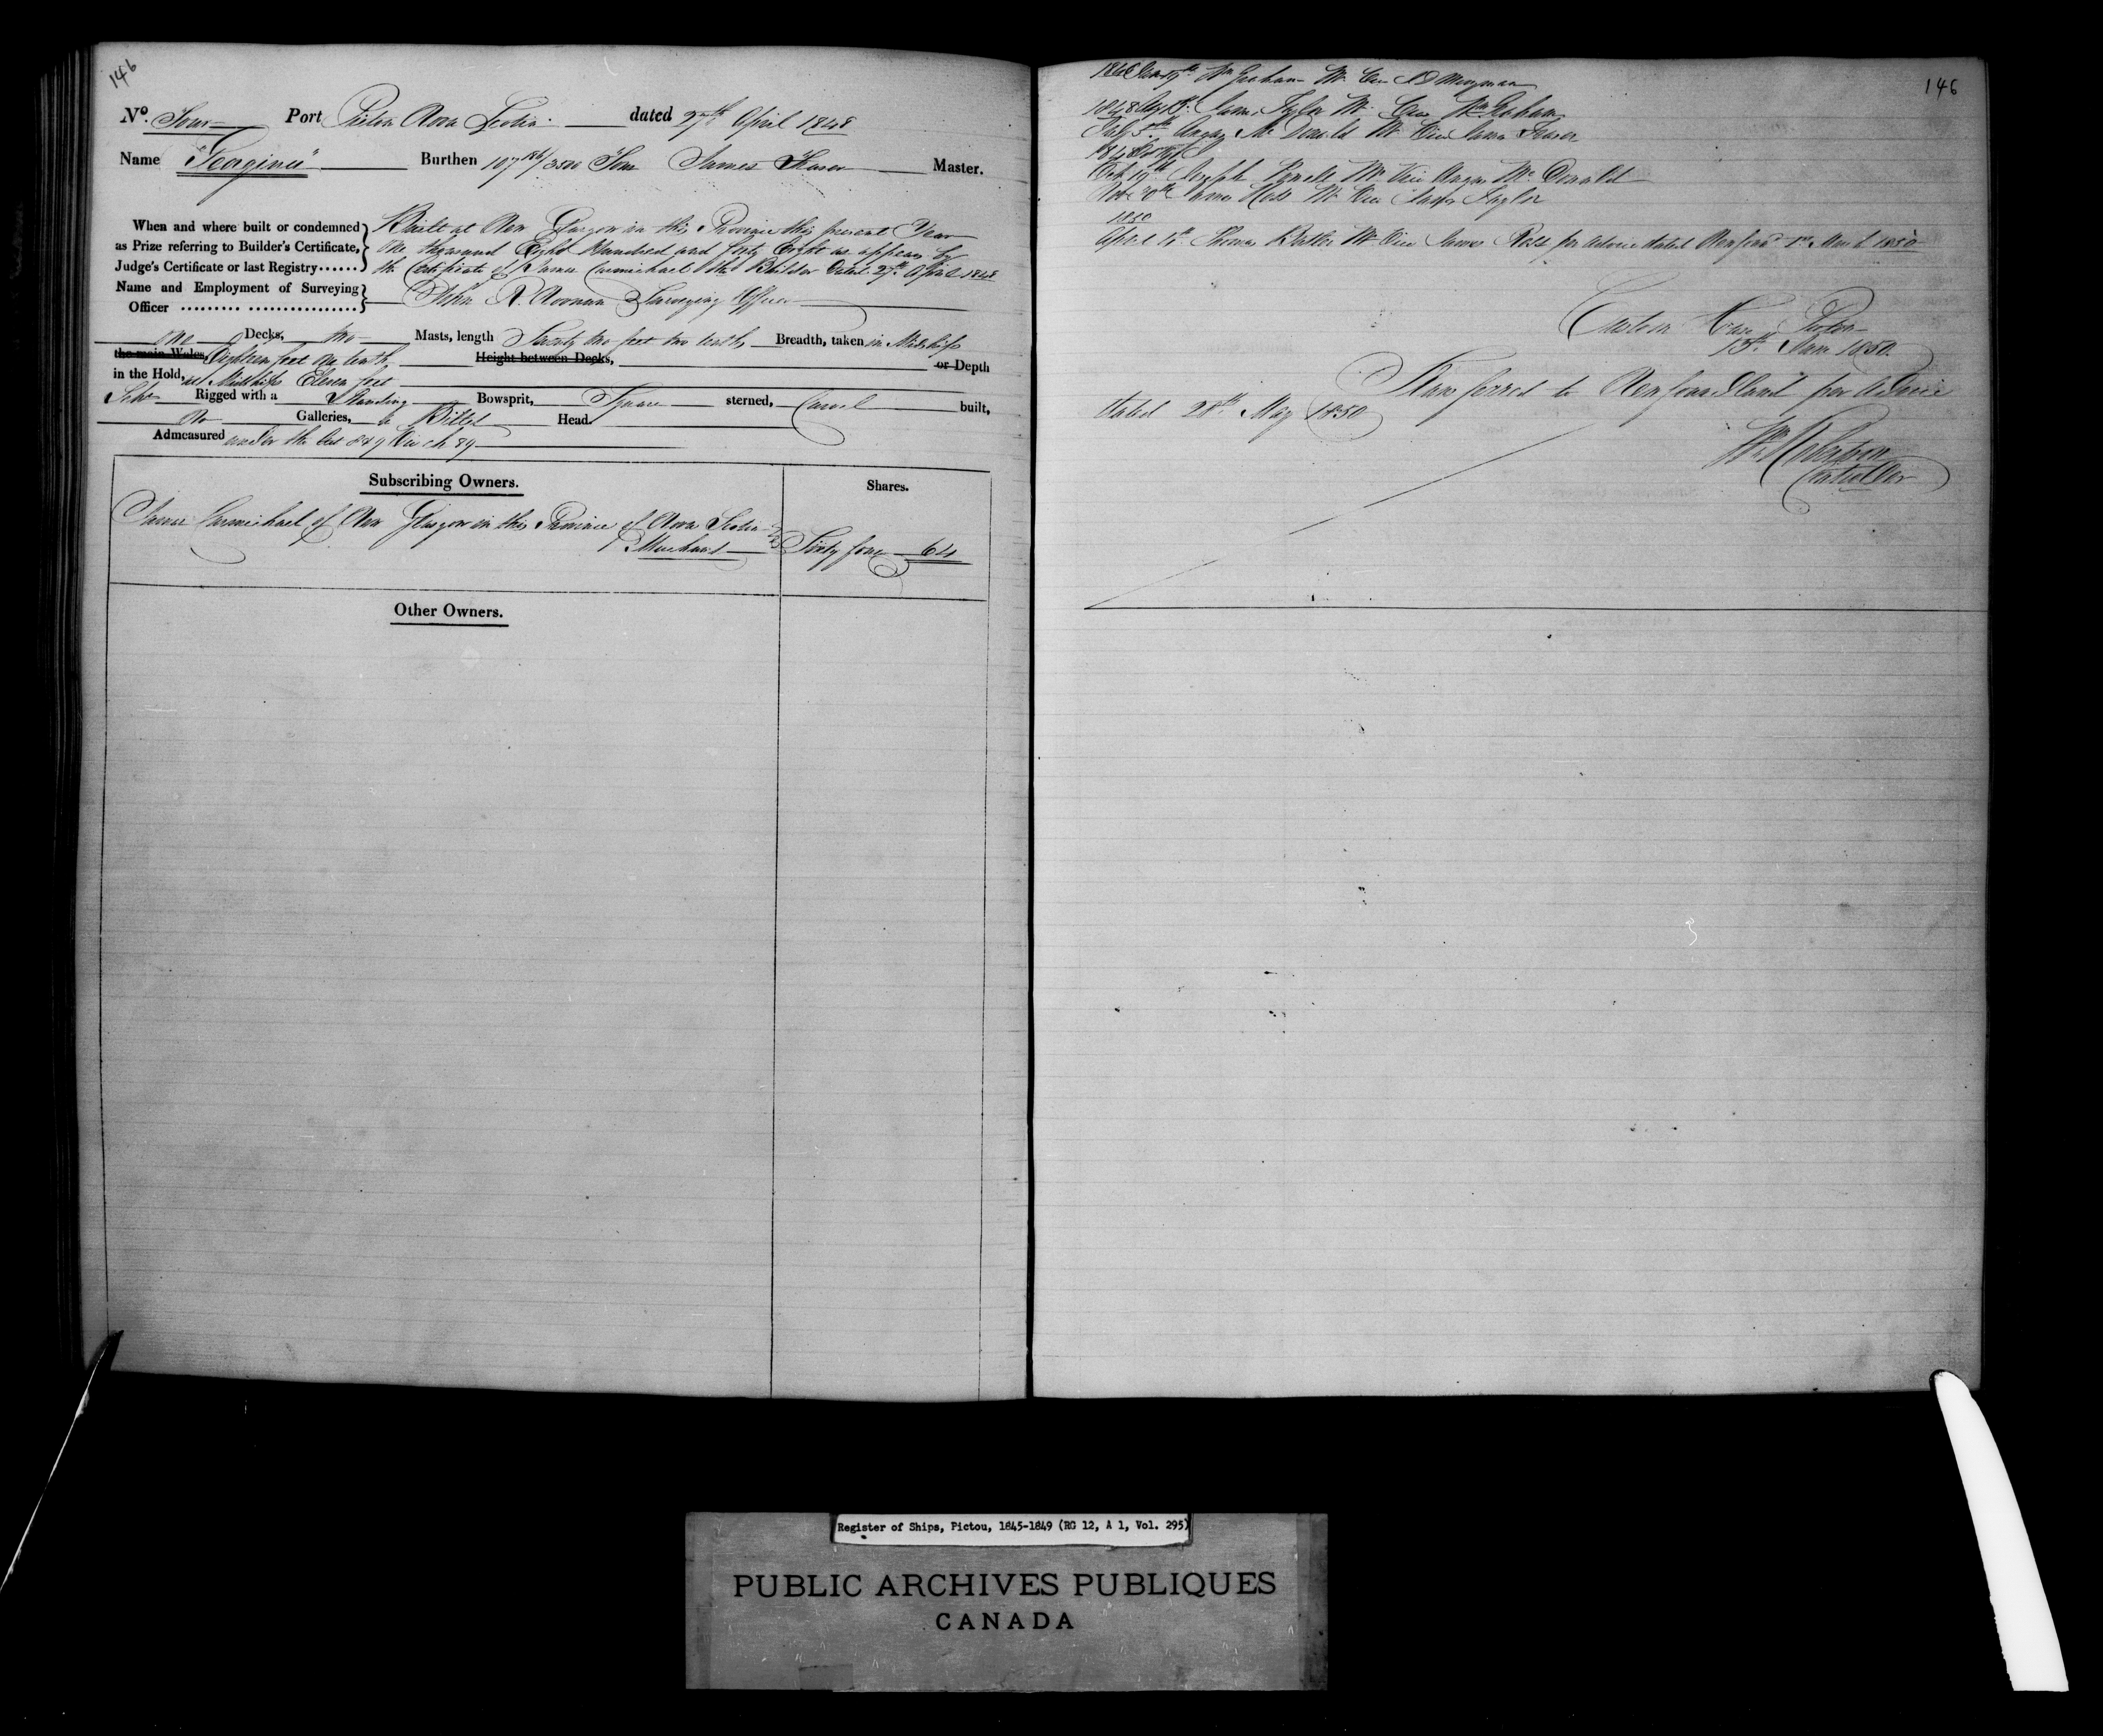 146
No. Four Port Pictou Nova Scotia dated 27th April 1848
Name Burthen 107 /3500 Tons James Fraser Master.
When and where built or condemned as Prize referring to Builder's Certificate, Judge's Certificate or last Registry ......
Built at New Glasgow in this Province this present Year
One thousand Eight Hundred and forty Eight as appears by
the Certificate of James Carmichael the Builder dated 27th April 1848
Name and Employment of Surveying Officer ......... ................
John Surveying Officer
One Decks, two Masts, length Seventy two feet two tenths Breadth, taken in Midships
the main Wales, Eighteen feet one tenth Height between Decks, or Depth
in the Hold, at Midships Eleven feet
Schr Rigged with a Standing Bowsprit, Square sterned, Carvel built,
No Galleries, a Billet Head.
Admeasured under the Act 8 & 9 Vic ch 89
Subscribing Owners.
Shares.
James Carmichael of New Glasgow in this Province of Nova Scotia
Merchant Sixty four 64
Other Owners.
146
Wm Graham Mr. Vice
1848 James Taylor Mr. Vice Wm Graham
July 5th Angus McDonald Mr Vice James Fraser
Oct 19th Joseph Mr Vice Angus McDonald
Nov 30th James Ross Mr Vice James Taylor
1850
April Thomas Mr Vice James Ross per advice dated Newfound 1850
Custom House Pictou
15th June 1850
Transferred to Newfoundland per advice
dated 28th May 1850
Wm Robertson
Controller
Register of Ships, Pictou, 1845-1849 (RG 12, A 1, Vol. 295)
PUBLIC ARCHIVES PUBLIQUES
CANADA